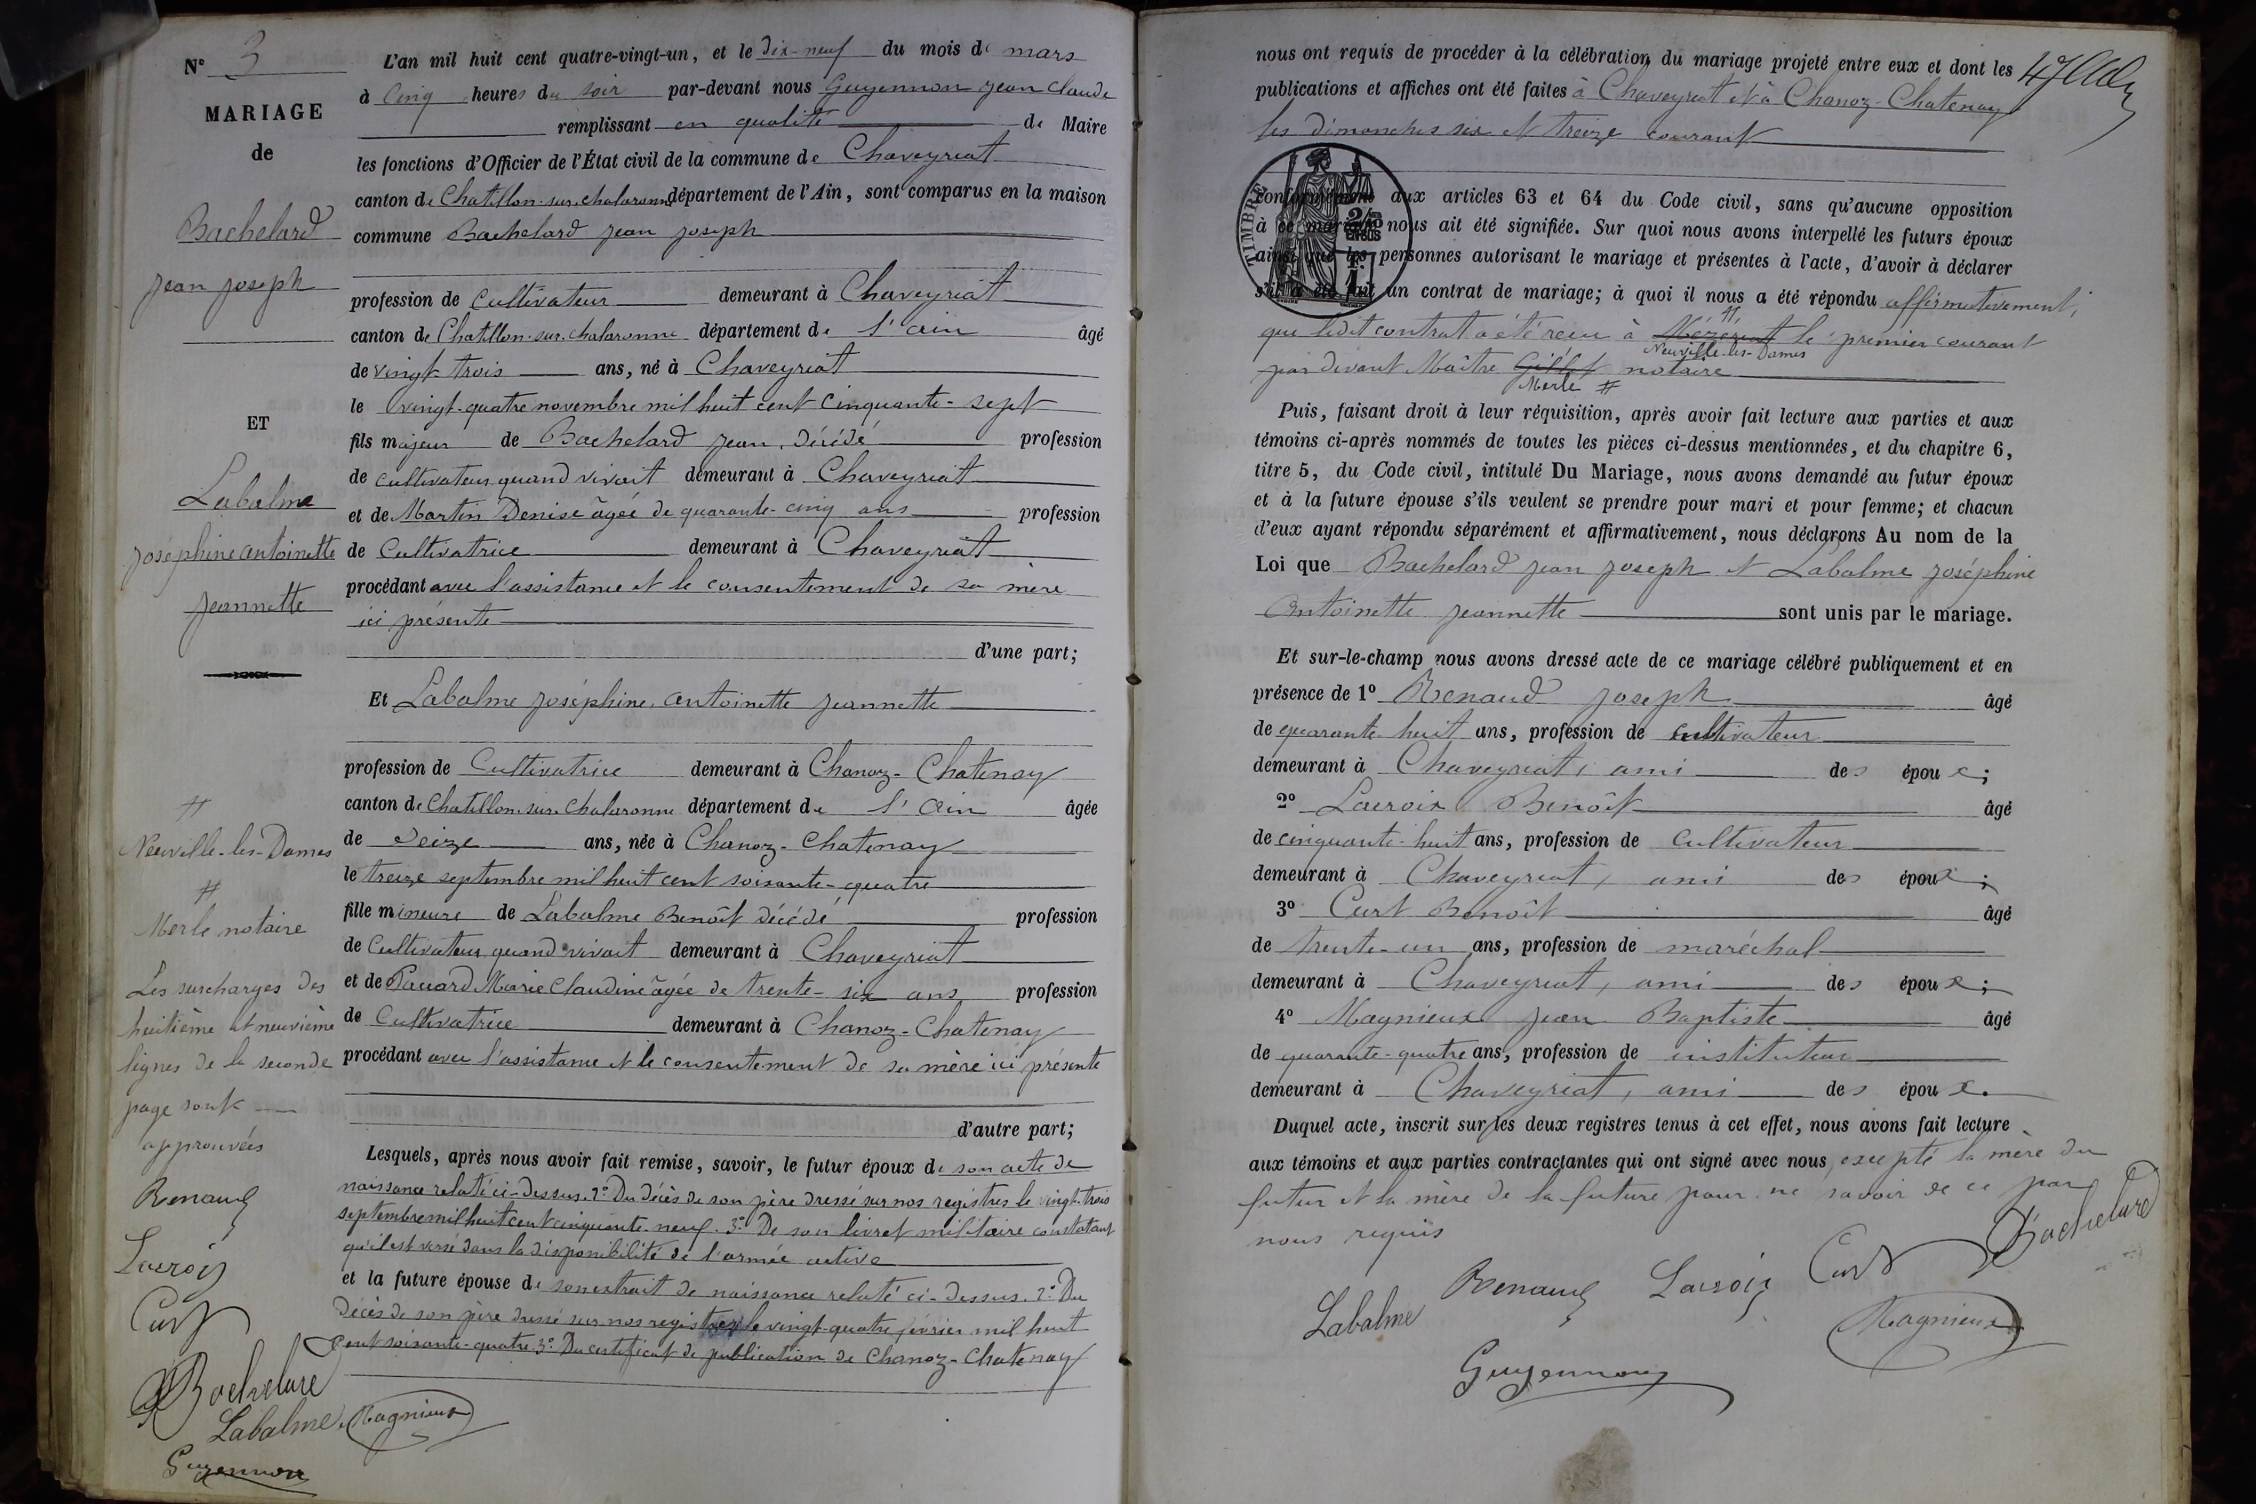 N° 3
MARIAGE
de
Bachelard
Jean Joseph
ET
Labalme
Joséphine antoinette
Jeannette
#
Neuville-les-Dames
#
Merle notaire
Les surcharges des
huitième et neuvième
lignes de la seconde
page sont
approuvées
Renaud
Lacroix
Curt
Bachelard
Labalme Magnieux
Guyennon
L'an mil huit cent quatre-vingt-un, et le dix-neuf du mois de mars
à cinq heures du soir par-devant nous Guyennon Jean Claude
remplissant en qualité de Maire
les fonctions d'Officier de l'État civil de la commune de Chaveyriat
canton de Chatillon-sur-chalaronne département de l'Ain, sont comparus en la maison
commune Bachelard Jean Joseph
profession de Cultivateur demeurant à Chaveyriat
canton de Chatillon-sur-chalaronne département de l'ain âgé
de vingt-trois ans, né à Chaveyriat
le vingt-quatre novembre mil huit cent cinquante-sept
fils majeur de Bachelard Jean, décédé profession
de cultivateur quand vivait demeurant à Chaveyriat
et de Martin Denise âgée de quarante-cinq ans profession
de Cultivatrice demeurant à Chaveyriat
procédant avec l'assistance et le consentement de sa mère
ici présente
d'une part;
Et Labalme Joséphine antoinette Jeannette
profession de Cultivatrice demeurant à Chanoz-Chatenay
canton de Chatillon-sur-Chalaronne département de l'ain âgée
de seize ans, née à Chanoz-Chatenay
le treize septembre mil huit cent soixante-quatre
fille mineure de Labalme Benoît décédé profession
de Cultivateur quand vivait demeurant à Chaveyriat
et de Marie Claudine âgée de trente-six ans profession
de Cultivatrice demeurant à Chanoz-Chatenay
procédant avec l'assistance et le consentement de sa mère ici présente
d'autre part;
Lesquels, après nous avoir fait remise, savoir, le futur époux de son acte de
naissance relaté ci-dessus. 2° Du décès de son père dressé sur nos registres le vingt-trois
septembre mil huit cent cinquante-neuf. 3° De son livret militaire constatant
qu'il est versé dans la disponibilité de l'armée active
et la future épouse de son extrait de naissance relaté ci-dessus. 2° Du
décès de son père dressé sur nos registres le vingt-quatre février mil huit
cent soixante-quatre 3° Du certificat de publication de Chanoz-Chatenay
nous ont requis de procéder à la célébration du mariage projeté entre eux et dont les
publications et affiches ont été faites à Chaveyriat et à Chanoz-Chatenay
les dimanches six et treize courant
TIMBRE
conformément aux articles 63 et 64 du Code civil, sans qu'aucune opposition
à ce mariage nous ait été signifiée. Sur quoi nous avons interpellé les futurs époux
ainsi que les personnes autorisant le mariage et présentes à l'acte, d'avoir à déclarer
s'il a été fait un contrat de mariage; à quoi il nous a été répondu affirmativement,
que ledit contrat a été reçu à Mézériat # le premier courant
Neuville-les-Dames
par devant Maître Gillet notaire
Merle #
Puis, faisant droit à leur réquisition, après avoir fait lecture aux parties et aux
témoins ci-après nommés de toutes les pièces ci-dessus mentionnées, et du chapitre 6,
titre 5, du Code civil, intitulé Du Mariage, nous avons demandé au futur époux
et à la future épouse s'ils veulent se prendre pour mari et pour femme; et chacun
d'eux ayant répondu séparément et affirmativement, nous déclarons Au nom de la
Loi que Bachelard Jean Joseph et Labalme Joséphine
Antoinette Jeannette sont unis par le mariage.
Et sur-le-champ nous avons dressé acte de ce mariage célébré publiquement et en
présence de 1° Renaud Joseph âgé
de quarante-huit ans, profession de cultivateur
demeurant à Chaveyriat, ami des époux;
2° Lacroix Benoît âgé
de cinquante-huit ans, profession de cultivateur
demeurant à Chaveyriat, ami des époux;
3° Curt Benoît âgé
de trente-un ans, profession de maréchal
demeurant à Chaveyriat, ami des époux;
4° Magnieux Jean Baptiste âgé
de quarante-quatre ans, profession de instituteur
demeurant à Chaveyriat, ami des époux.
Duquel acte, inscrit sur les deux registres tenus à cet effet, nous avons fait lecture
aux témoins et aux parties contractantes qui ont signé avec nous, excepté la mère du
futur et la mère de la future pour ne savoir de ce par
nous requis
Bachelard
Labalme Renaud Lacroix Curt
Magnieux
Guyennon